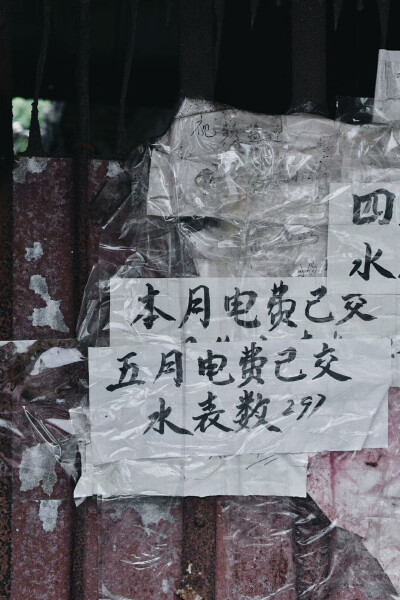 四
水
本月电费已交
五月电费已交
水表数297